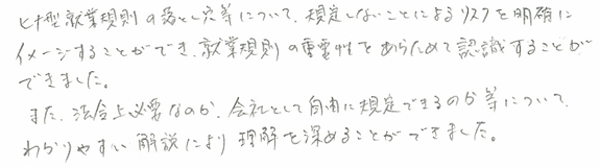 ヒナ型就業規則の落とし穴等について、規定しないことによるリスクを明確に
イメージすることができ、就業規則の重要性をあらためて認識することが
できました。
また、法令上必要なのか、会社として自由に規定できるのか等について、
わかりやすい解説により理解を深めることができました。